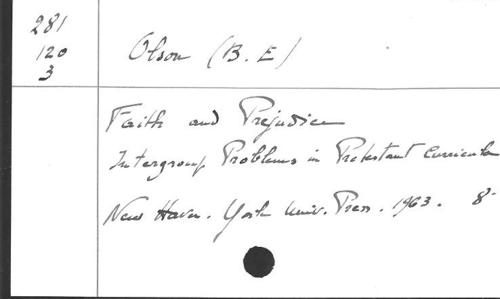 281
120
3
Olson (B. E)
Faith and Prejudice
Intergroup Problems in Protestant Curricula
New Haven. Yale Univ. Press. 1963. 8°